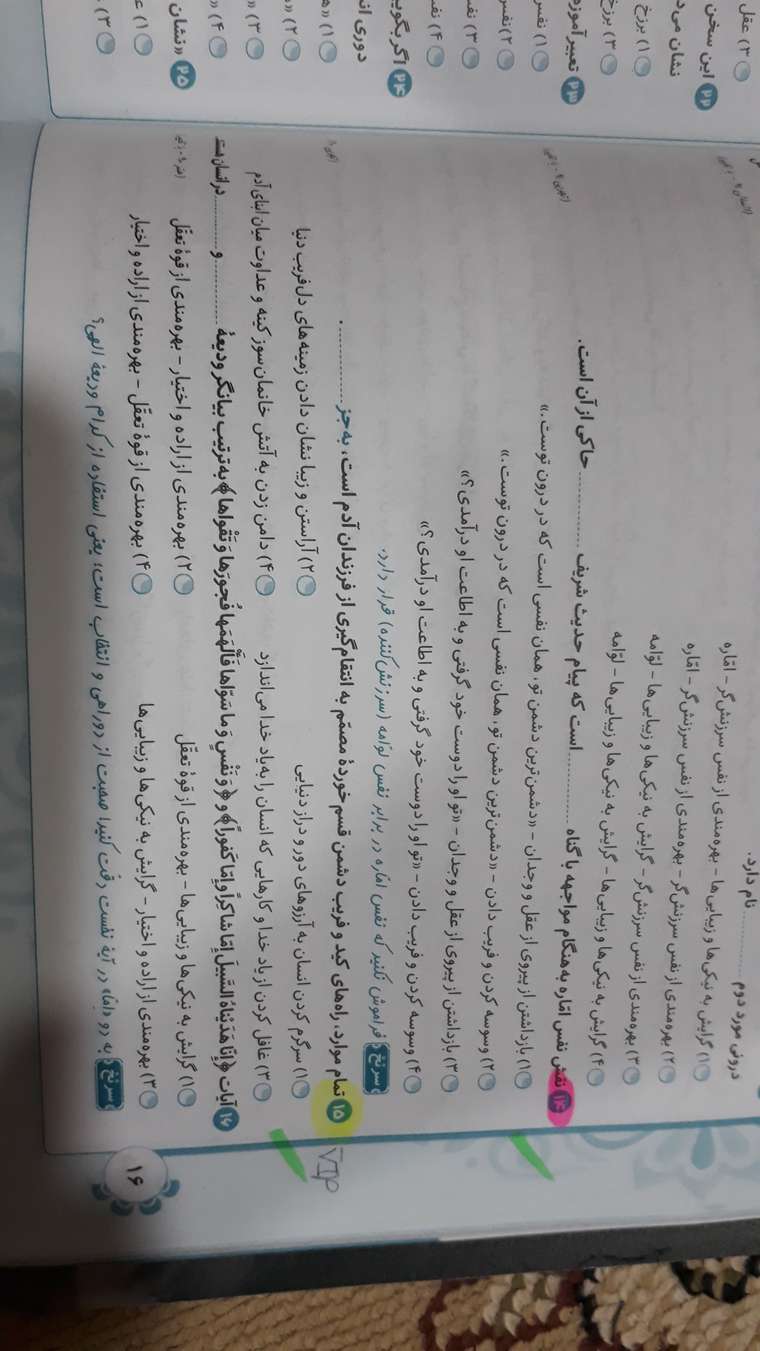 درونی مورد دوم .......... نام دارد.
۱) گرایش به نیکی‌ها و زیبایی‌ها - بهره‌مندی از نفس سرزنش‌گر - امّاره
۲) بهره‌مندی از نفس سرزنش‌گر - بهره‌مندی از نفس سرزنش‌گر - امّاره
۳) بهره‌مندی از نفس سرزنش‌گر - گرایش به نیکی‌ها و زیبایی‌ها - لوّامه
۴) گرایش به نیکی‌ها و زیبایی‌ها - گرایش به نیکی‌ها و زیبایی‌ها - لوّامه
۱۴ نقش نفس اماره به هنگام مواجهه با گناه .......... است که پیام حدیث شریف .......... حاکی از آن است.
۱) بازداشتن از پیروی از عقل و وجدان - «دشمن‌ترین دشمن تو، همان نفسی است که در درون توست.»
۲) وسوسه کردن و فریب دادن - «دشمن‌ترین دشمن تو، همان نفسی است که در درون توست.»
۳) بازداشتن از پیروی از عقل و وجدان - «تو او را دوست خود گرفتی و به اطاعت او درآمدی؟»
۴) وسوسه کردن و فریب دادن - «تو او را دوست خود گرفتی و به اطاعت او درآمدی؟»
سرنخ فراموش نکنید که نفس اماره در برابر نفس لوّامه (سرزنش‌کننده) قرار دارد.
۱۵ تمام موارد، راه‌های کید و فریب دشمن قسم خوردهٔ مصمّم به انتقام‌گیری از فرزندان آدم است، به‌جز ..........
۱) سرگرم کردن انسان به آرزوهای دور و دراز دنیایی
۲) آراستن و زیبا نشان دادن زمینه‌های دل‌فریب دنیا
۳) غافل کردن از یاد خدا و کارهایی که انسان را به یاد خدا می‌اندازد
۴) دامن زدن به آتش خانمان‌سوز کینه و عداوت میان ابنای آدم
۱۶ آیات ﴿إِنَّا هَدَيْنَاهُ السَّبِيلَ إِمَّا شَاكِرًا وَإِمَّا كَفُورًا﴾ و ﴿وَنَفْسٍ وَمَا سَوَّاهَا فَأَلْهَمَهَا فُجُورَهَا وَتَقْوَاهَا﴾ به ترتیب بیانگر ودیعهٔ .......... و .......... در انسان است
۱) گرایش به نیکی‌ها و زیبایی‌ها - بهره‌مندی از قوهٔ تعقّل
۲) بهره‌مندی از اراده و اختیار - بهره‌مندی از قوهٔ تعقّل
۳) بهره‌مندی از اراده و اختیار - گرایش به نیکی‌ها و زیبایی‌ها
۴) بهره‌مندی از قوهٔ تعقّل - بهره‌مندی از اراده و اختیار
سرنخ به دو «إمّا» در آیهٔ نخست دقت کنید! صحبت از دوراهی و انتخاب است؛ یعنی استفاده از کدام ودیعهٔ الهی؟
VIP
۱۶
۳) عقل
۲۲ این سخن
نشان می‌د
۱) برزخ
۳) برزخ
۲۳ تعبیر آموزه
۱) نفس
۲) نفس
۳) نفس
۴) نفس
۲۴ اگر بگوی
دوری ان
۱) «ه
۲) «
۳) «
۴) «
۲۵ «نشان
۱) ع
۳)